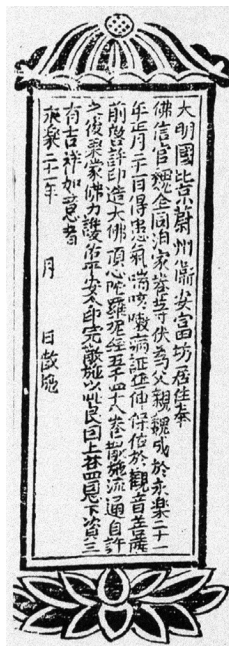 大明國北京蔚州衛安富坊居住奉
佛信官魏全同泊家眷等伏為父親魏成於永樂二十一
年正月二十日得患氣喘咳嗽病証延伸保佑於觀音菩薩
前啓許印造大佛頂心陀羅尼經五千四十八卷散施流通自許
之後果蒙佛力護佑平安今印完散施以此良因上荅四恩下資三
有吉祥如意者
永樂二十一年 月 日散施